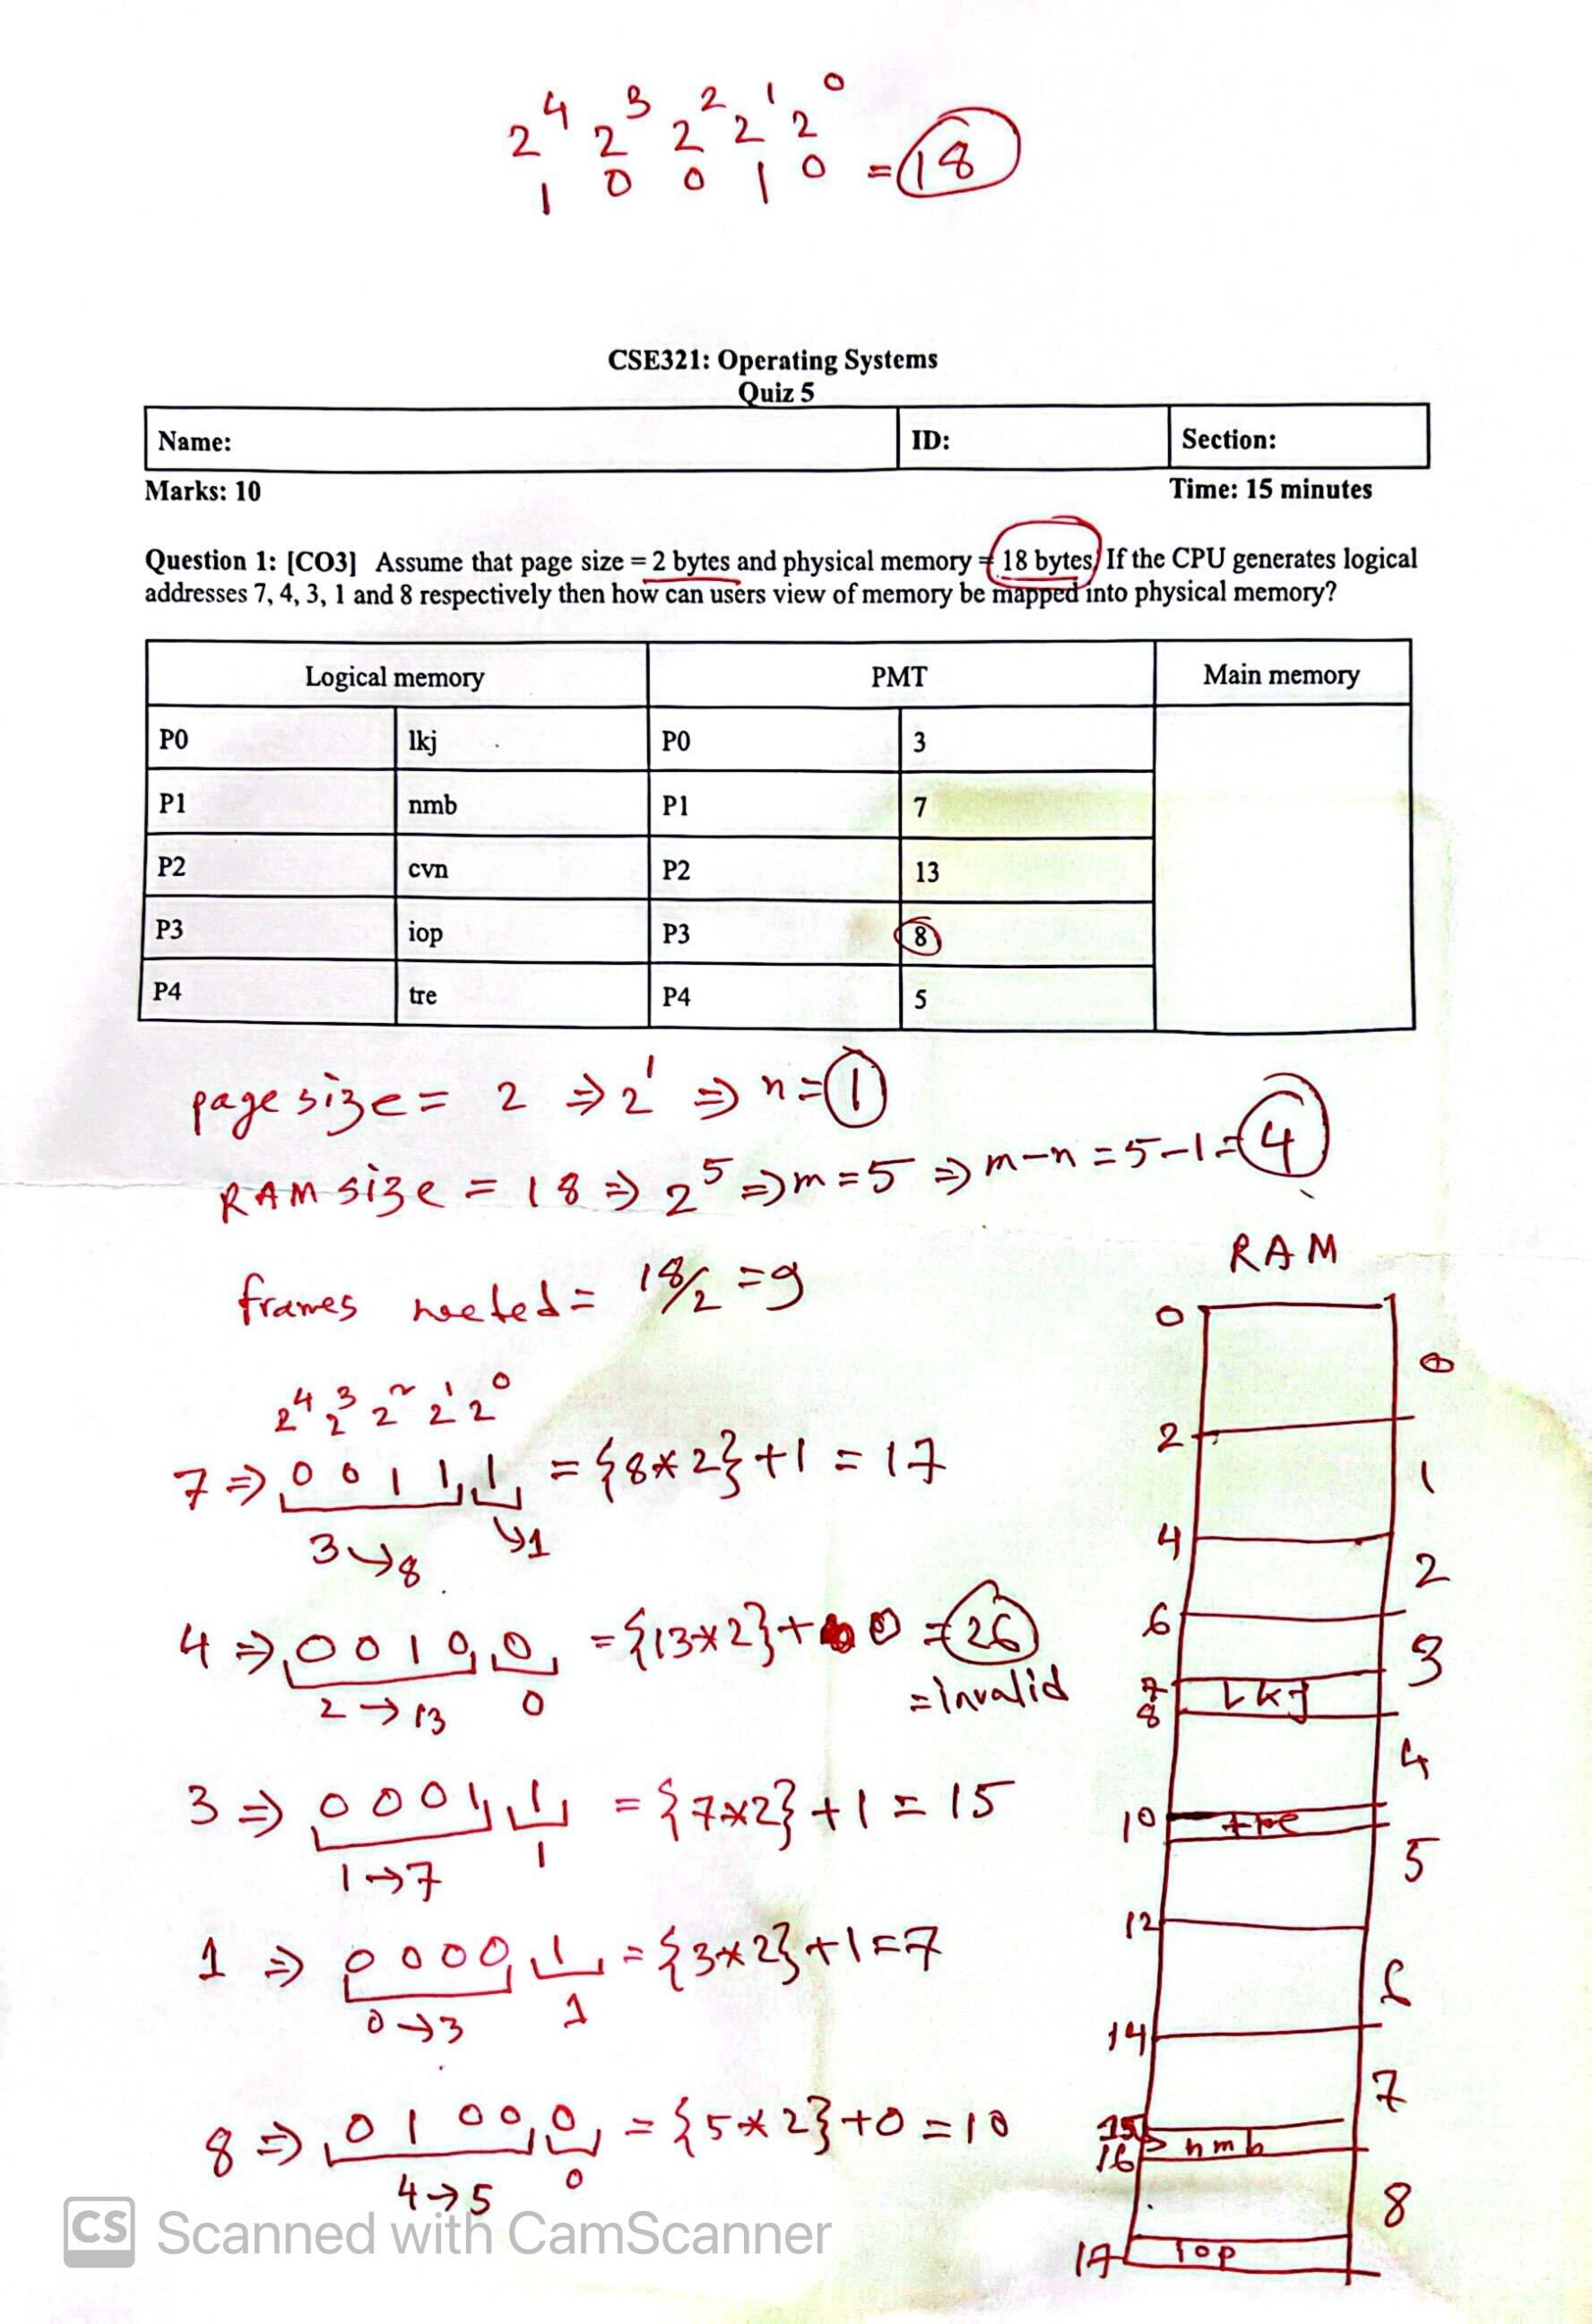 2^4 2^3 2^2 2^1 2^0
1 0 0 1 0 = 18
CSE321: Operating Systems
Quiz 5
Name: ID: Section:
Marks: 10 Time: 15 minutes
Question 1: [CO3] Assume that page size = 2 bytes and physical memory = 18 bytes. If the CPU generates logical
addresses 7, 4, 3, 1 and 8 respectively then how can users view of memory be mapped into physical memory?
Logical memory PMT Main memory
P0 lkj P0 3
P1 nmb P1 7
P2 cvn P2 13
P3 iop P3 8
P4 tre P4 5
page size = 2 ⇒ 2^1 ⇒ n = 1
RAM size = 18 ⇒ 2^5 ⇒ m = 5 ⇒ m-n = 5-1 = 4
frames needed = 18/2 = 9
2^4 2^3 2^2 2^1 2^0
7 ⇒ 0 0 1 1 1 = {8*2}+1 = 17
3→8 →1
4 ⇒ 0 0 1 0 0 = {13*2}+0 = 26
= invalid
2→13 0
3 ⇒ 0 0 0 1 1 = {7*2}+1 = 15
1→7 1
1 ⇒ 0 0 0 0 1 = {3*2}+1=7
0→3 1
8 ⇒ 0 1 0 0 0 = {5*2}+0 = 10
4→5 0
RAM
0
0
2
1
4
2
6
3
7 Lkj
8
4
10 tre
5
12
6
14
7
15 nmb
16
8
17 iop
CS Scanned with CamScanner